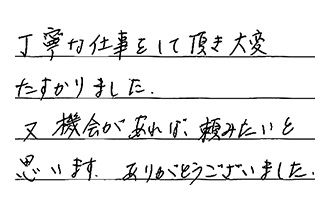 丁寧な仕事をして頂き大変
たすかりました.
又機会があれば、頼みたいと
思います. ありがとうございました.